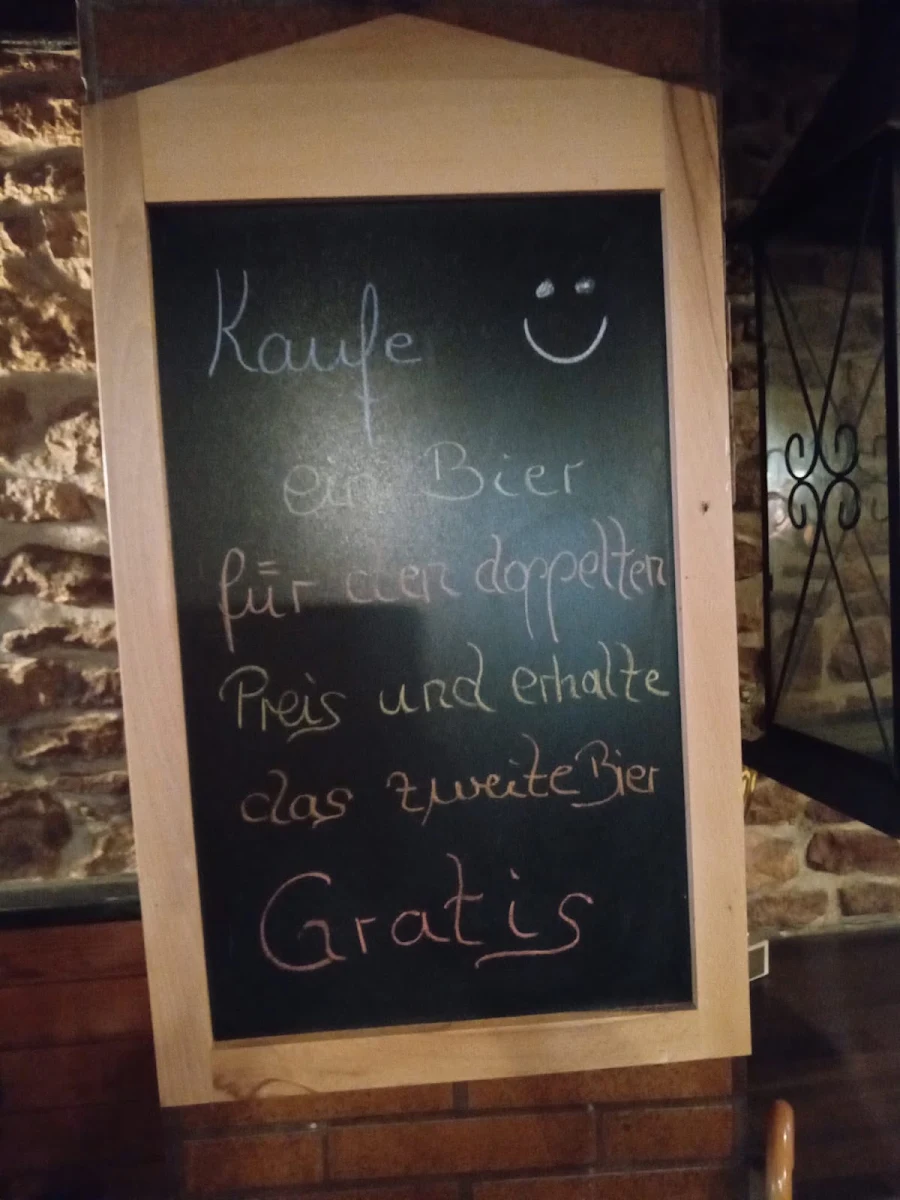 Kaufe
ein Bier
für den doppelten
Preis und erhalte
das zweite Bier
Gratis